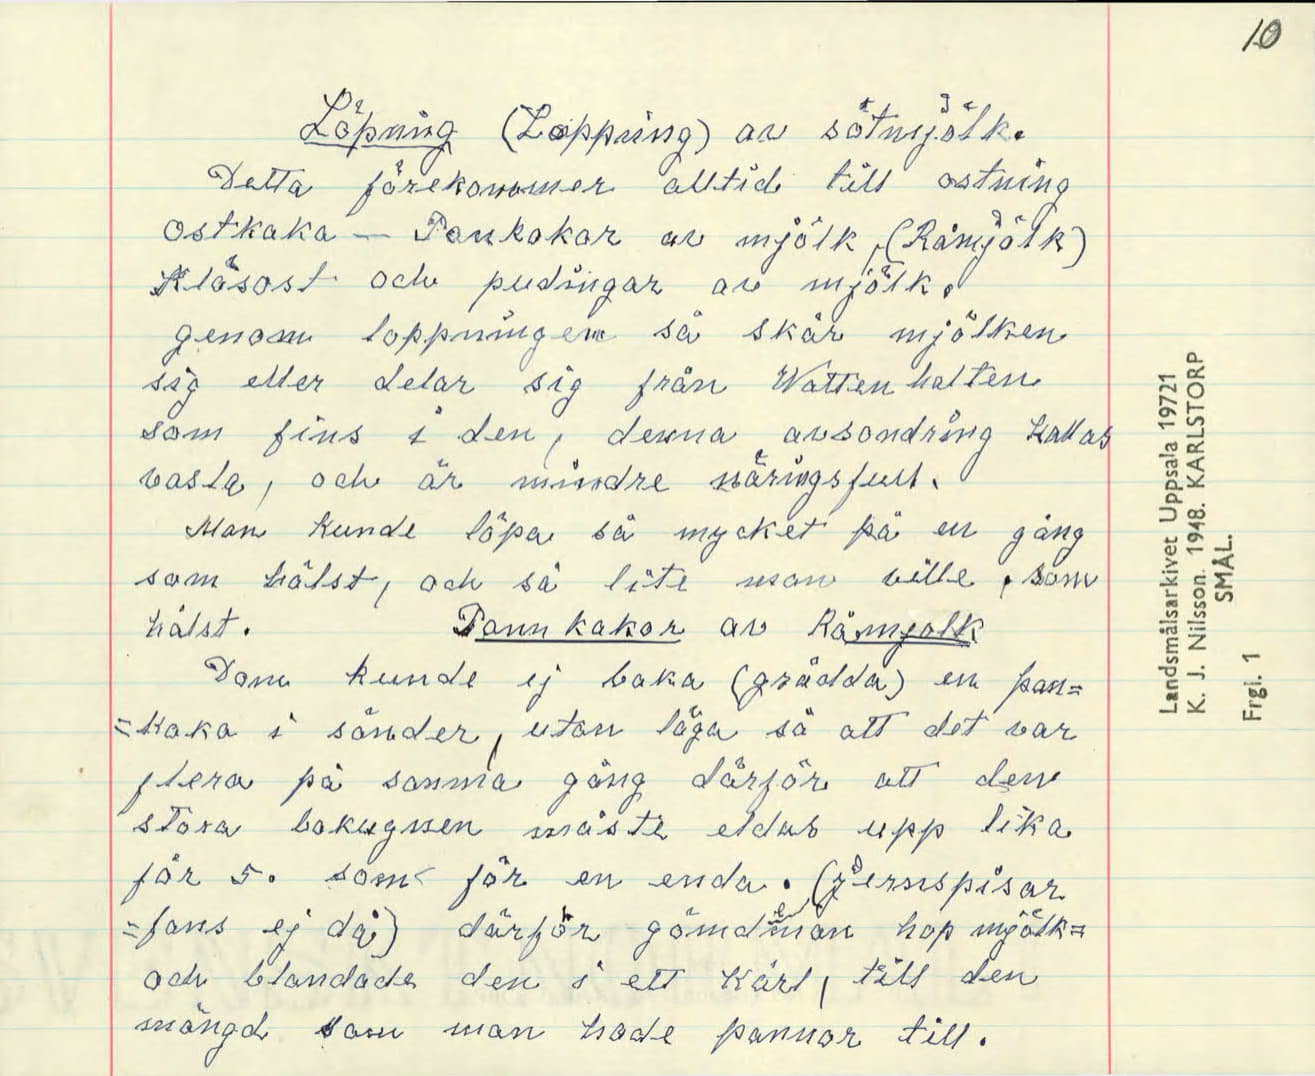 10
Löpning (Loppning) av sötmjölk.
Detta förekommer alltid till ostning
ostkaka — Pankakor av mjölk, (Råmjölk)
Klåsost och pudingar av mjölk.
genom loppningen så skär mjölken
sig eller delar sig från Wattenhalten
som fins i den, denna avsondring kallas
vasla, och är mindre näringsfull.
Man kunde löpa så mycket på en gång
som hälst, och så lite man ville, som
hälst. Pannkakor av Råmjolk
Dom kunde ej baka (grädda) en pan=
=kaka i sänder, utan låga så att det var
flera på samma gång därför att den
stora bakugnen måste eldas upp lika
för 5. som för en enda. (jernspisar
=fans ej då) därför gömde man hop mjölk=
och blandade den i ett kärl, till den
mängd som man hade pannor till.
Landsmålsarkivet Uppsala 19721
K. J. Nilsson. 1948. KARLSTORP
SMÅL.
Frgl. 1